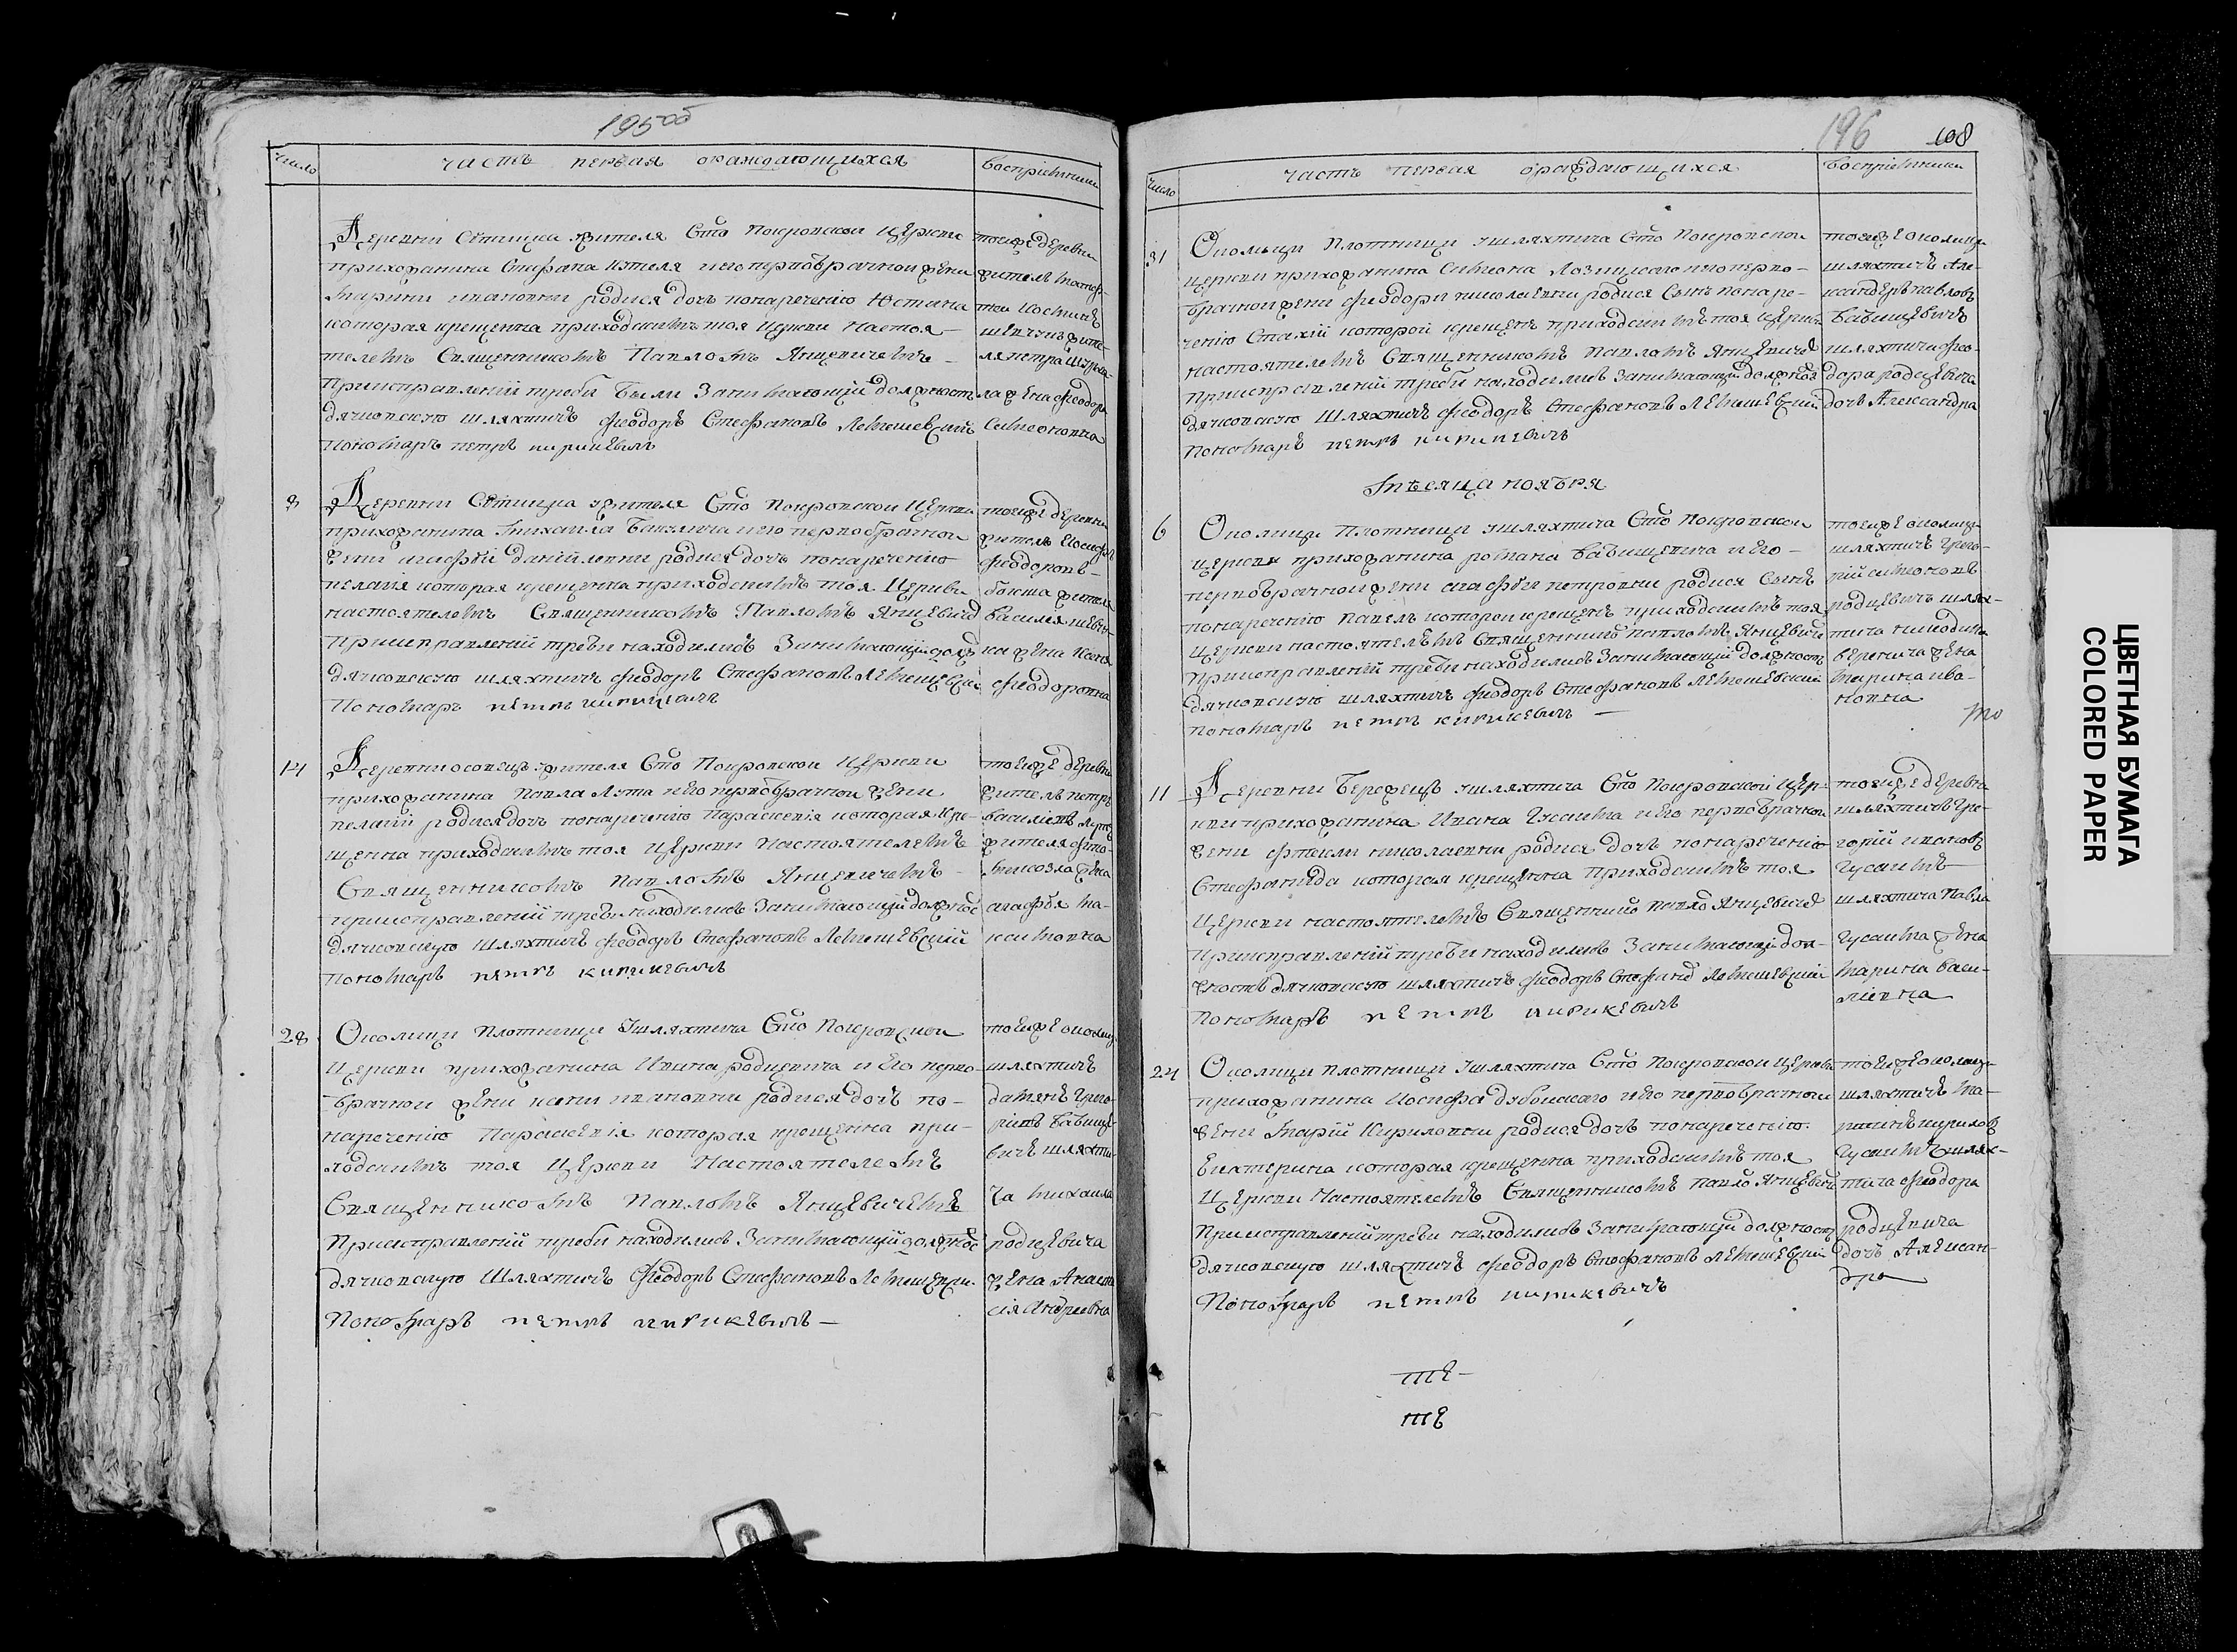 195об
число
часть первая ораждающихся
воспріемники
Деревни Сѣтница жителя Сто Покровской Церкви
приходжанина Стефана Кителя и его первобрачной жени
Марини ивановни родися дочь понаречению Юстина
которая крещенна приходскимъ тоя Церкви Настоя-
телемъ Священникомъ Павломъ Янцевичемъ -
Приисправлений треби Были Занимающий должност
дячковскую шляхтичъ Феодоръ Стефановъ Лемешевский
Пономаръ петръ кирикевичъ
тоейже деревни
житель
шляпетра
ла жена Феодора
Симеоновна
8
Деревни Сѣтница жителя Сто Покровской Церкви
приходжанина Михаила Баклича и его первобрачной
жени агафѣи данийловни родися дочь понаречению
пелагия которая крещенна приходскимъ тоя Церкви
настоятелемъ Священникомъ Павломъ Янцевичо
Приисправлений треби находились Занимающий долж
дячковскую шляхтичъ Феодоръ Стефановъ Лемешевски
Пономаръ петръ кирикевичъ
тоейже деревни
житель Иосифъ
Феодоровъ
жителя
василя
ка жена
Феодоровна
14
Деревни осовецъ жителя Сто Покровской Церкви
приходжанина Павла Лута и его первобрачной жени
пелагии родися дочь понаречению Параскевія которая кре-
щенна приходскимъ тоя Церкви Настоятелемъ
Священникомъ Павломъ Янцевичемъ -
приисправлений треби находились Занимающий должнос
дячковскую шляхтичъ Феодоръ Стефановъ Лемешевский
пономаръ петръ кирикевичъ
тоейже деревни
житель петръ
василіевъ
жителя
козла жена
агафѣя ма-
ксимовна
28
Околици Плотници Ушляхтича Сто Покровской
Церкви приходжанина Ивана родцевича и Его перво-
брачной жени ивановни родися дочь по-
наречению Параскевія которая крещенна при-
ходскимъ тоя Церкви Настоятелемъ
Священникомъ Павломъ Янцевичемъ
Приисправлений треби находились Занимающий должнос
дячковскую Шляхтичъ Феодоръ Стефановъ Лемешевски
Пономаръ петръ кирикевичъ —
тоейже околиц
шляхтичъ
Григо-
ріевъ Бабицe
вичъ шляхти
ча михаила
родцевича
жена Анаста
сія Андреевна
196
108
число
часть первая ораждающихся
воспріемники
31
Околици Плотници Ушляхтича Сто Покровской
церкви приходжанина Симеона Лозицкаго и его перво-
брачной жени Феодори николаевни родися Сынъ понаре-
чению Стахій которой крещенъ приходскимъ тоя Церкви
настоятелемъ Священникомъ Павломъ Янцевичо
Приисправлений треби находились Занимающий должнос
дячковскую Шляхтичъ Феодоръ Стефановъ Лемешевский
Пономаръ петръ кирикевичъ
тоейже околици
шляхтичъ Але-
ксандеръ павловъ
Бабицевичъ
шляхтича Фео-
дора родцевича
дочь Александра
Мѣсяца ноября
6
Околици Плотници Ушляхтича Сто Покровской
церкви приходжанина романа Бабицевича и Его -
первобрачной жени агафѣи петровни родися Сынъ
понаречению Павелъ которой крещенъ приходскимъ тоя
Церкви настоятелемъ Священнико павломъ Янцевиче
Приисправлений треби находились Занимающий должност
дячковскую шляхтичъ Феодоръ Стефановъ Лемешевский
пономаръ петръ кирикевичъ —
тоейже околици
шляхтичъ Григо-
рій симеоновъ
родцевичъ шлях-
тича никодима
веренича жена
марина ива-
новна
11
Деревни Бережцъ Ушляхтича Сто Покровской Цер-
кви приходжанина Ивана Гусаима и его первобрачной
жени Фтекли николаевни родися дочь понаречению
Стефанида которая крещенна приходскимъ тоя
Церкви настоятелемъ Священнико павло Янцевичо
Приисправлений треби находились Занимающий дол-
жность дячковскую шляхтичъ Феодоръ Стефано Лемешевский
Пономаръ петръ кирикевичъ
тоейже деревни
шляхтичъ Гри-
горій ивановъ
Гусаимъ
шляхтича Павла
Гусаима жена
марина васи-
ліевна
24
Околици плотници Ушляхтича Сто Покровской Церкви
приходжанина Иосифа дубоискаго и его первобрачной
жени Марій Кириловни родися дочь понаречению
Екатерина которая крещенна приходскимъ тоя
Церкви Настоятелемъ Священникомъ павло Янцевич
Приисправлений треби находились Занимающий должност
дячковскую шляхтичъ Феодоръ Стефановъ Лемешевский
Пономаръ петръ кирикевичъ
тоейже околиц-
шляхтичъ Ма-
ринъ кирилов
Гусаимъ шлях-
тича Феодора
родцевича
дочь Алексан-
дра
ЦВЕТНАЯ БУМАГА
COLORED PAPER